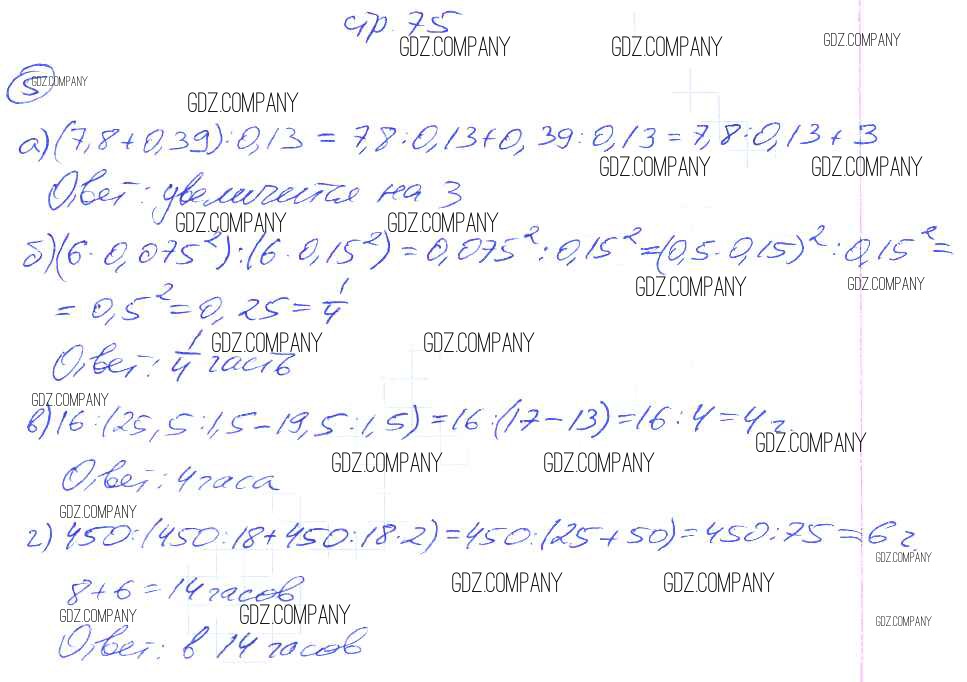 стр. 75
GDZ.COMPANY GDZ.COMPANY GDZ.COMPANY
5 GDZ.COMPANY
GDZ.COMPANY
а) (7,8+0,39):0,13 = 7,8:0,13+0,39:0,13=7,8:0,13+3
GDZ.COMPANY GDZ.COMPANY
Ответ: увеличится на 3
GDZ.COMPANY GDZ.COMPANY
б) (6·0,075²):(6·0,15²)=0,075²:0,15²=(0,5·0,15)²:0,15²=
GDZ.COMPANY GDZ.COMPANY
=0,5²=0,25=1/4
GDZ.COMPANY GDZ.COMPANY
Ответ: 1/4 часть
GDZ.COMPANY
в) 16:(25,5:1,5-19,5:1,5)=16:(17-13)=16:4=4 ч.
GDZ.COMPANY
GDZ.COMPANY GDZ.COMPANY
Ответ: 4 часа
GDZ.COMPANY
г) 450:(450:18+450:18·2)=450:(25+50)=450:75=6 ч
GDZ.COMPANY
GDZ.COMPANY GDZ.COMPANY
8+6=14 часов
GDZ.COMPANY GDZ.COMPANY GDZ.COMPANY
Ответ: в 14 часов